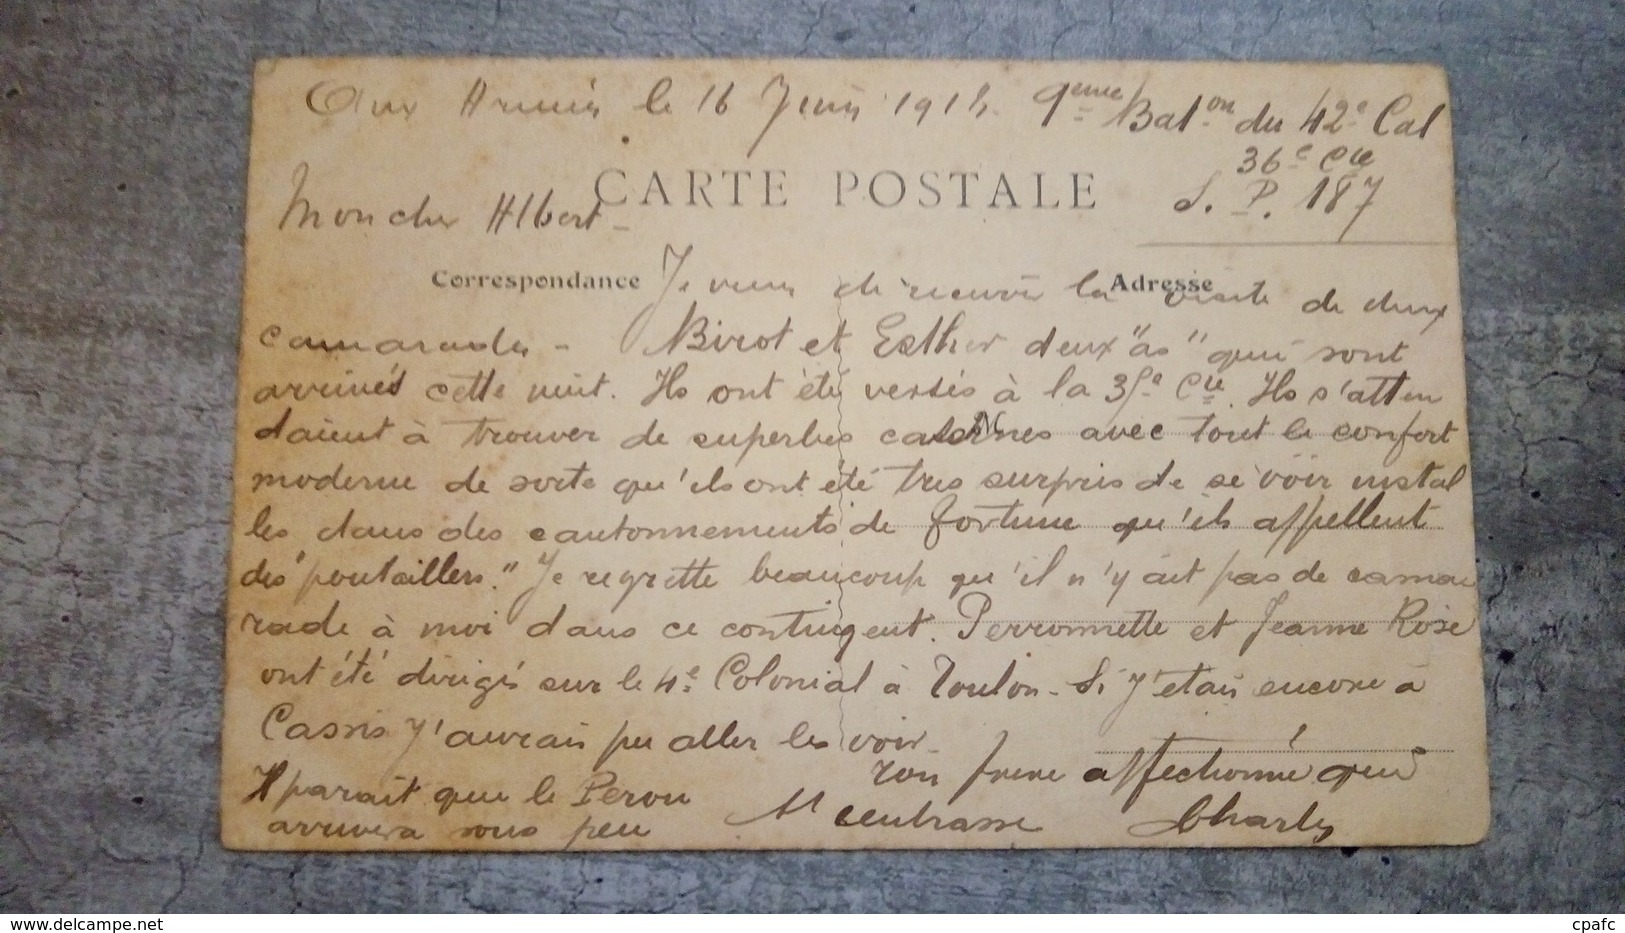 Aux Armées le 16 Juin 1915. 9ème Bat.on du 42e Cal
36e Cie
S. P. 187
CARTE POSTALE
Mon cher Albert -
Correspondance
Adresse
Je viens de recevoir la visite de deux
camarades - Birot et Esther deux "as" qui sont
arrivés cette nuit. Ils ont été versés à la 35e Cie. Ils s'atten
daient à trouver de superbes casernes avec tout le confort
moderne de sorte qu'ils ont été très surpris de se voir instal
lés dans des cantonnements de fortune qu'ils appellent
des "poulaillers." Je regrette beaucoup qu'il n'y ait pas de cama
rade à moi dans ce contingent. Perronnette et Jeanne Rose
ont été dirigés sur le 4e Colonial à Toulon - Si j'étais encore à
Cassis j'aurais pu aller les voir -
Ton frère affectionné qui
t'embrasse Charles
Il paraît que le Perou
arrivera sous peu
www.delcampe.net
cpafc